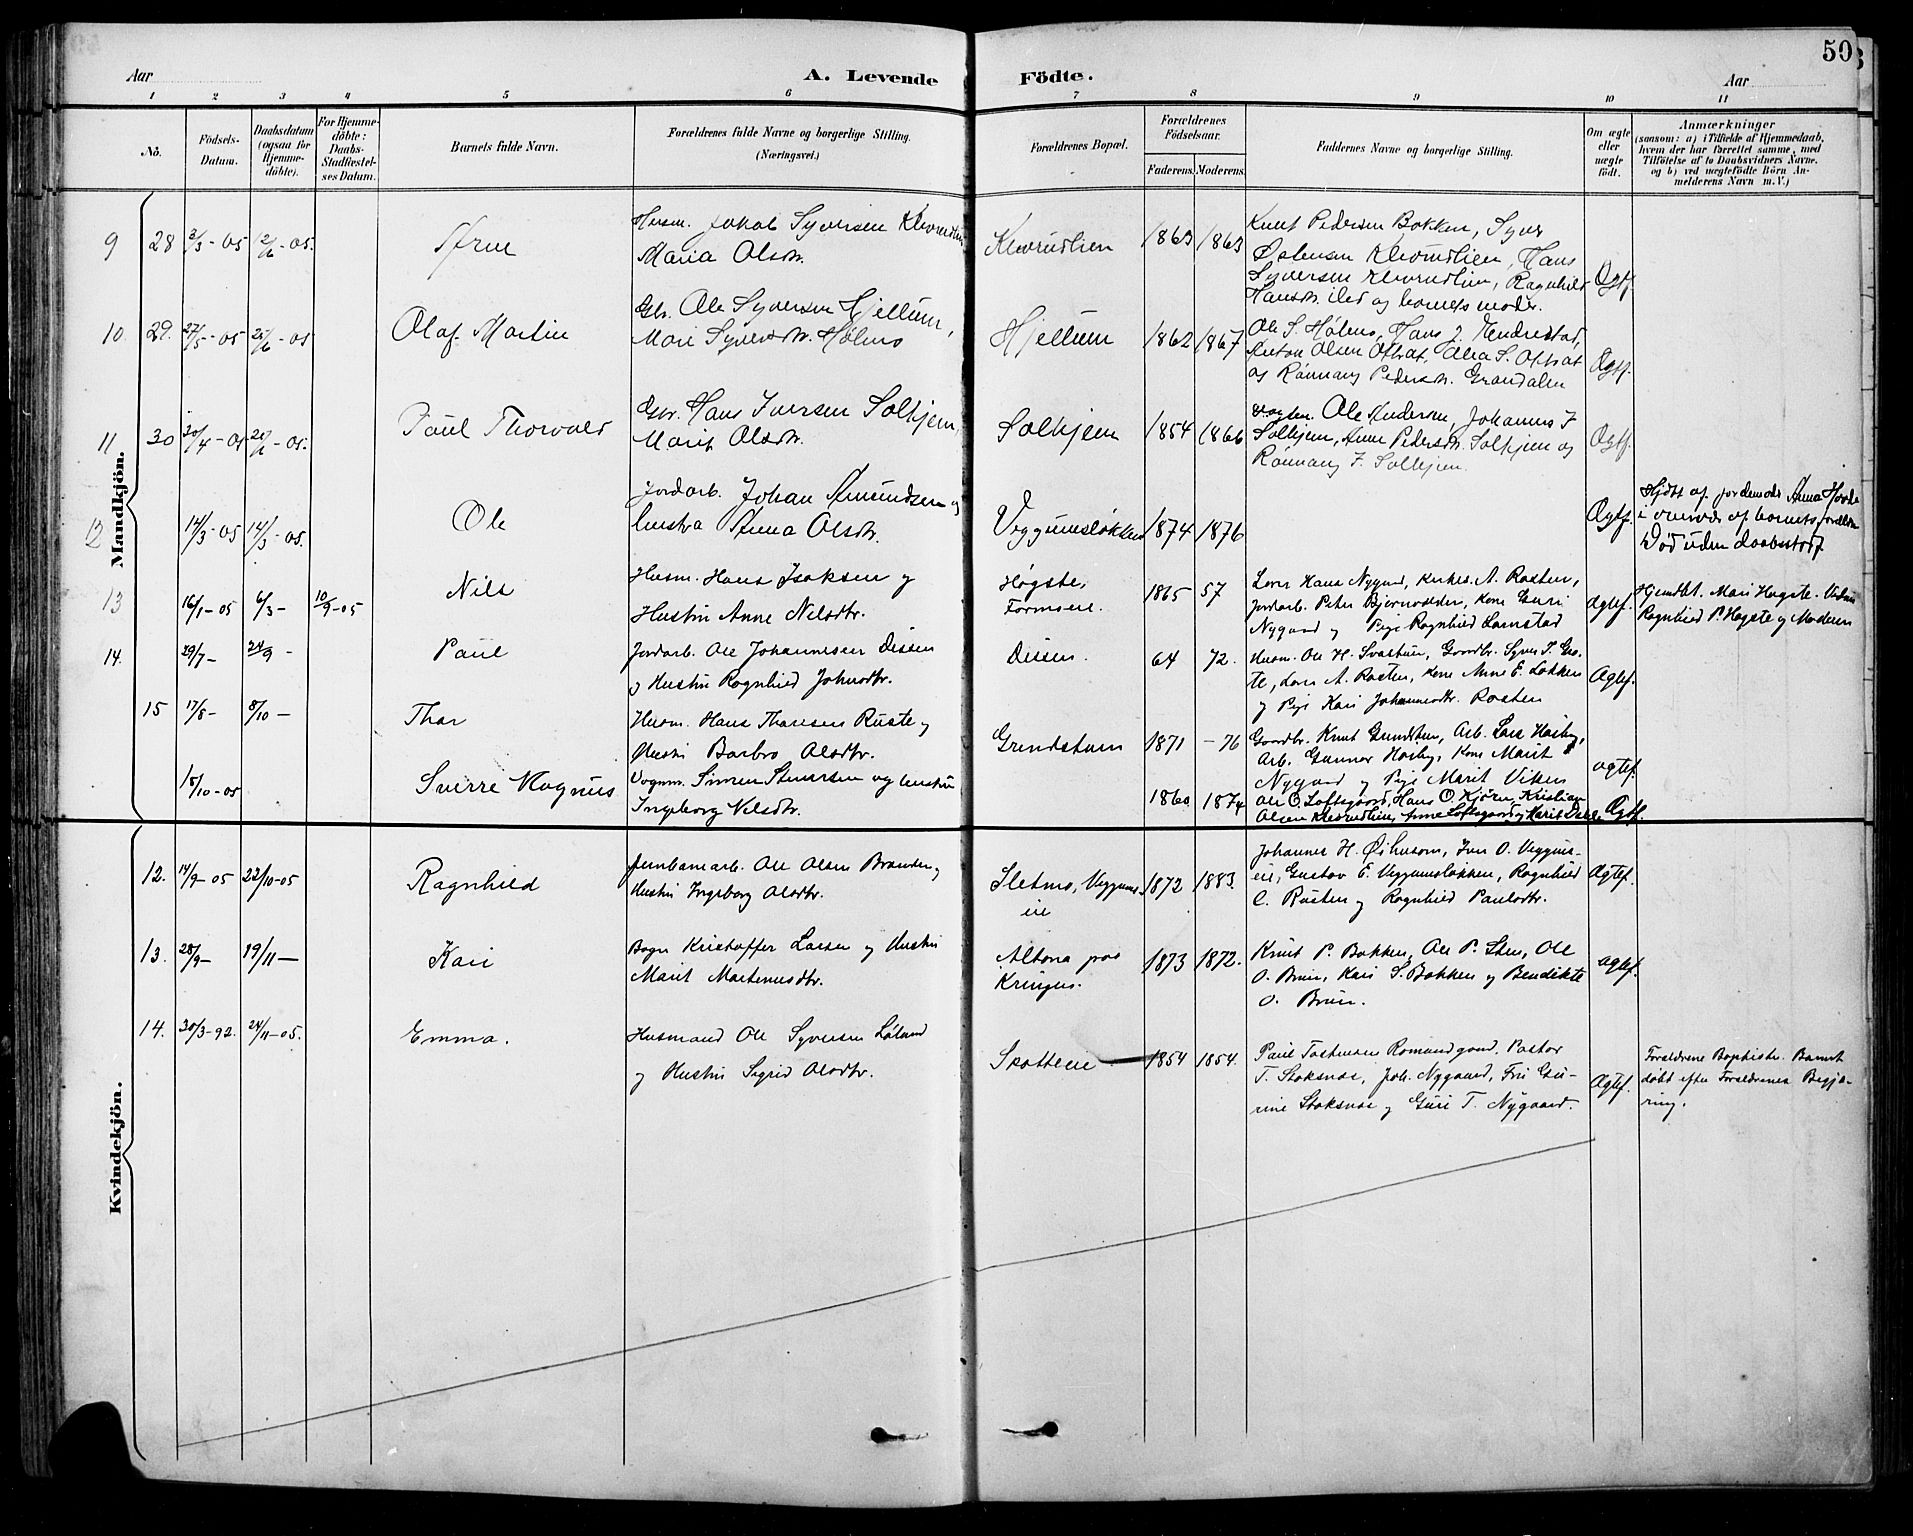 50
Aar
A. Levende
Födte.
Aar
1 2 3 4 5 6 7 8 9 10 11
No.
Födsels-
Datum.
Daabsdatum
(ogsaa for
Hjemme-
döbte).
For Hjemme-
döbte:
Daabs-
Stadfæstel-
ses Datum.
Barnets fulde Navn.
Forældrenes fulde Navne og borgerlige Stilling.
(Næringsvei.)
Forældrenes Bopæl.
Forældrenes
Födselsaar.
Faderens.
Moderens.
Faddernes Navne og borgerlige Stilling.
Om ægte
eller
uægte
födt.
Anmærkninger
(saasom: a) i Tilfælde af Hjemmedaab,
hvem der har forrettet samme, med
Tilföielse af to Daabsvidners Navne.
og b) ved uægtefödte Börn An-
melderens Navn m.V.)
Mandkjön.
9 28 2/3-05 12/6-05.
Jakob Syversen
Maria Olsdtr.
Klevrudlien 1863 1863
Knut Pedersen Bakken, Syver
Østensen Klevrudlien, Hans
Syversen Klevrudlien, Ragnhild
Hansdtr. ibd og barnets moder.
Ægtf.
10 29. 27/5-05
Olaf Martin
Gbr. Ole Syversen Hjellum,
Mari Syversdtr. Hølmo
Hjellum 1862 1867
Ole S. Hølmo, Hans J.
Anton Olsen
og Rønnaug Pedersdtr. Grandalen
Ægtf.
11 30 30/4-05
Paul Thorvald
Gbr. Hans Iversen Solhjem,
Marit Olsdtr.
Solhjem 1854 1866
Ole Andersen, Johannes I.
Solhjem, Anne Pedersdtr. Solhjem og
Rønnaug I. Solhjem.
Ægtf.
12 14/3-05 14/3-05.
Ole
Jordarb. Johan Amundsen og
hustru Anna Olsdtr.
Veggumsløkken 1874 1876
Ægtf.
Hjdbt af jordemoder Anna
i overvær af barnets forældre
Død uden daabsstadf.
13 16/1-05 6/3- 10/9-05
Nils
Husm. Hans Isaksen og
Hustru Anne Nelsdtr.
Høgste,
1865 57
Lars Hans Nygaard, Kirkes. A. Rosten,
Jordarb. Peter Kone Guri
Nygaard og Pige Ragnhild
Ægtef.
Hjemdbt. Mari Høgste. Vidner
Ragnhild P. Høgste og Moderen
14. 29/7- 24/9-
Paul
Jordarb. Ole Johannesen Dissen
og Hustru Ragnhild Johnsdtr.
Dissen. 64 72.
Husm. Ole H. Gaardbr. Syver
Lars A. Rosten, Kone Anne E. Løkken
og Pige Kari Johannesdtr. Rosten
Ægtef.
15 17/8- 8/10-
Thor
Husm. Hans Thoresen Ruste og
Hustru Barbro Olsdtr.
Grindstuen 1871 -76
Gaardbr. Knut Arb. Lars Høiby,
Arb. Gunnar Høiby, Kone Marit
Nygaard og Pige Marit Viken
Ægtef.
15/10-05
Sverre Magnus
Simen og hustru
Ingeborg Nilsdtr.
1860 1874
Ole O. Loftsgaard, Hans O. Kjørn, Kristian
Olsen Klevrudlien, Anne Loftsgaard og Marit
Ægtf.
Kvindekjön.
12. 14/9-05 22/10-05
Ragnhild
Jernbanearb. Ole Olsen Branden og
Hustru Ingeborg Olsdtr.
Sletmo, Veggums-
eie
1872 1883.
Johannes H. Iver O. Veggums-
eie, Gustav E. Veggumsløkken, Ragnhild
C. Rusten og Ragnhild Paulsdtr.
Ægtef.
13. 28/9- 19/11-
Kari
Kristoffer Larsen og Hustru
Marit Martinusdtr.
Altona paa
Kringen.
1873 1872.
Knut P. Bakken, Ole P. Sten, Ole
O. Brun, Kari S. Bakken og Bendikte
O. Brun.
Ægtef.
14. 30/3-92. 24/11-05.
Emma.
Husmand Ole Syversen
og Hustru Sigrid Olsdtr.
1854 1854.
Paul Romundgaard, Pastor
T. Stoksnæs, Joh. Nygaard, Fru Gu-
rine Stoksnæs og Guri T. Nygaard.
Ægtef.
Forældrene Baptister. Barnet
døbt efter Forældrenes Begjæ-
ring.